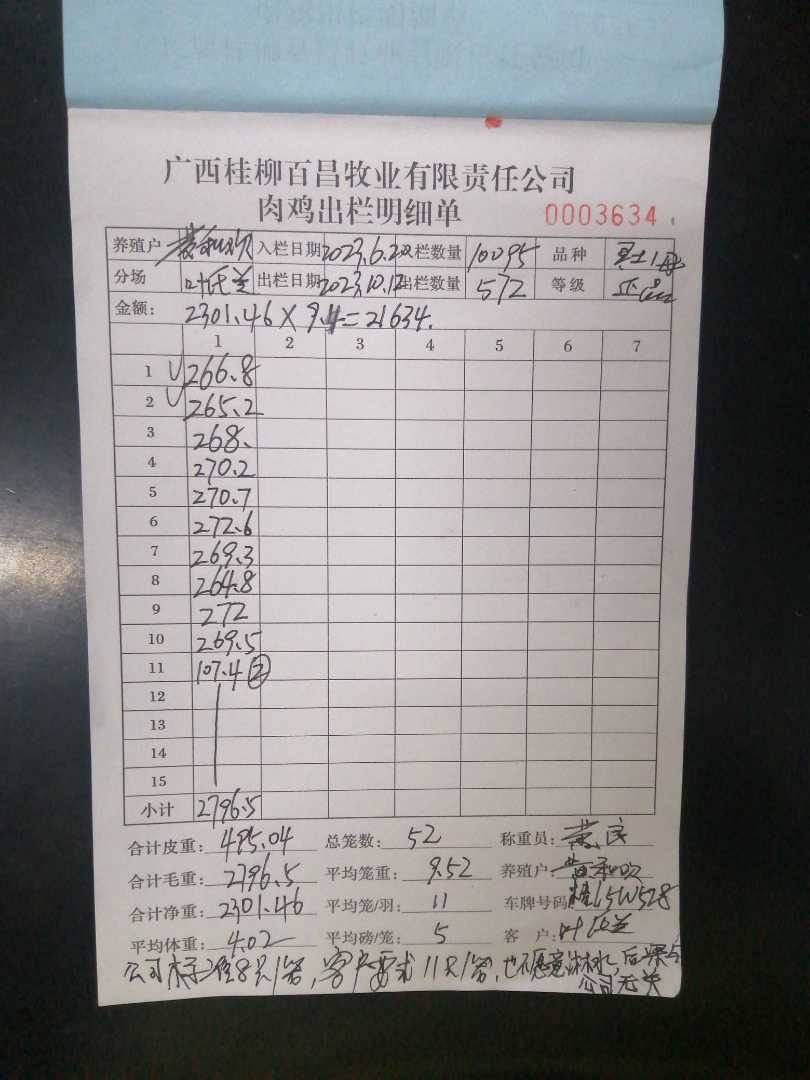 广西桂柳百昌牧业有限责任公司
肉鸡出栏明细单 0003634
养殖户 入栏日期 2023.6.20 栏数量 10095 品种
分场 叶氏兰 出栏日期 2023.10.12 出栏数量 572 等级 正品
金额: 2301.46×9.4=21634.
1 2 3 4 5 6 7
1 266.8
2 265.2
3 268.
4 270.2
5 270.7
6 272.6
7 269.3
8 264.8
9 272
10 269.5
11 107.4 ②
12
13
14
15
小计 2796.5
合计皮重: 495.04 总笼数: 52 称重员: 黄良
合计毛重: 2796.5 平均笼重: 9.52 养殖户
合计净重: 2301.46 平均笼/羽: 11 车牌号码 桂L5W528
平均体重: 4.02 平均磅/笼: 5 客户: 叶氏兰
公司标准8只/笼,客户要求11只/笼,也不愿意,后果与
公司无关